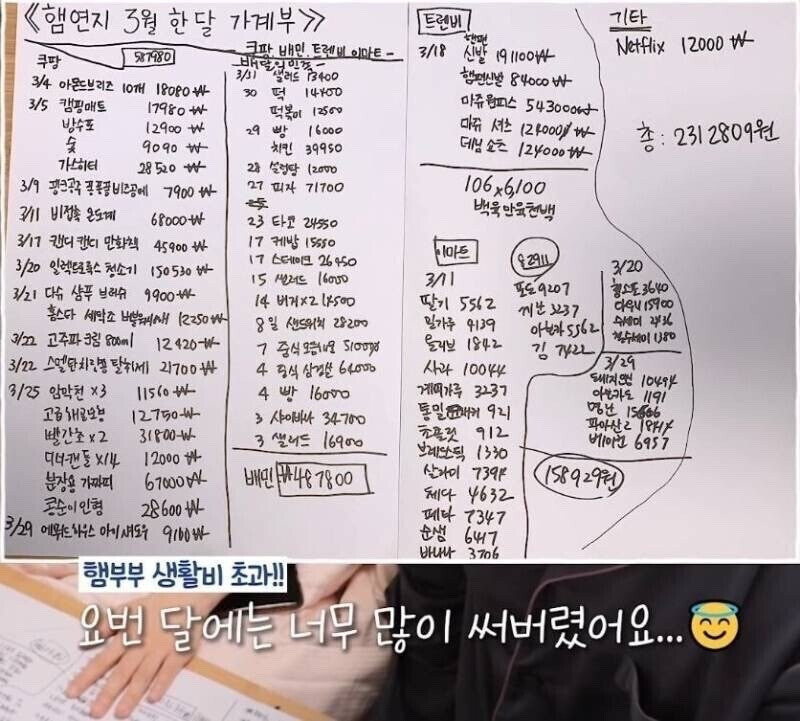 《햄연지 3월 한달 가계부》
쿠팡 587980
3/4 아몬드브리즈 10개 18080₩
3/5 캠핑매트 17980₩
방수포 12900₩
숯 9090₩
가스히터 28520₩
3/9 7900₩
3/11 비접촉 온도계 68000₩
3/17 캔디캔디 만화책 45900₩
3/20 일렉트로룩스 청소기 150530₩
3/21 다슈 샴푸 브러쉬 9900₩
홈스타 세탁조 12250₩
3/22 고주파 크림 800ml 12420₩
3/22 탈취제 21700₩
3/25 암막천 X3 11560₩
12750₩
빨간초 X2 31800₩
디너캔들 X14 12000₩
분장용 67000₩
콩순이인형 28600₩
3/29 에뛰드하우스 아이섀도우 9100₩
쿠팡, 배민, 트렌비, 이마트
배달의민족
3/31 샐러드 13400
30 떡 14800
떡볶이 12500
29 빵 16000
치킨 39950
28 설렁탕 12000
27 피자 71700
23 타코 24550
17 케밥 15550
17 스테이크 26950
15 샐러드 16000
14 버거X2 14500
8일 샌드위치 28200
7 중식 51000
4 중식 64000
4 빵 16000
3 사이바바 34700
3 샐러드 16900
배민 ₩487800
트렌비
3/18 햄편 신발 191100₩
햄편신발 84000₩
마쥬원피스 543000₩
마쥬 셔츠 124000₩
데님쇼츠 124000₩
106×6,100
백육만육천백
이마트
3/11
딸기 5562
밀가루 9139
올리브 1842
사과 10044
계피가루 3237
통밀 921
초콜릿 912
브레드스틱 1330
살라미 7394
체다 4632
페타 7347
순생 6417
바나나 3706
포도 9207
3237
아보카도 5562
김 7422
3/20
3640
15900
수세미 2436
1380
3/29
10494
아보카도 1191
명란 15606
파마산 2 18414
베이컨 6957
158929원
기타
Netflix 12000₩
총 : 2312809원
햄부부 생활비 초과!!
요번 달에는 너무 많이 써버렸어요...😇